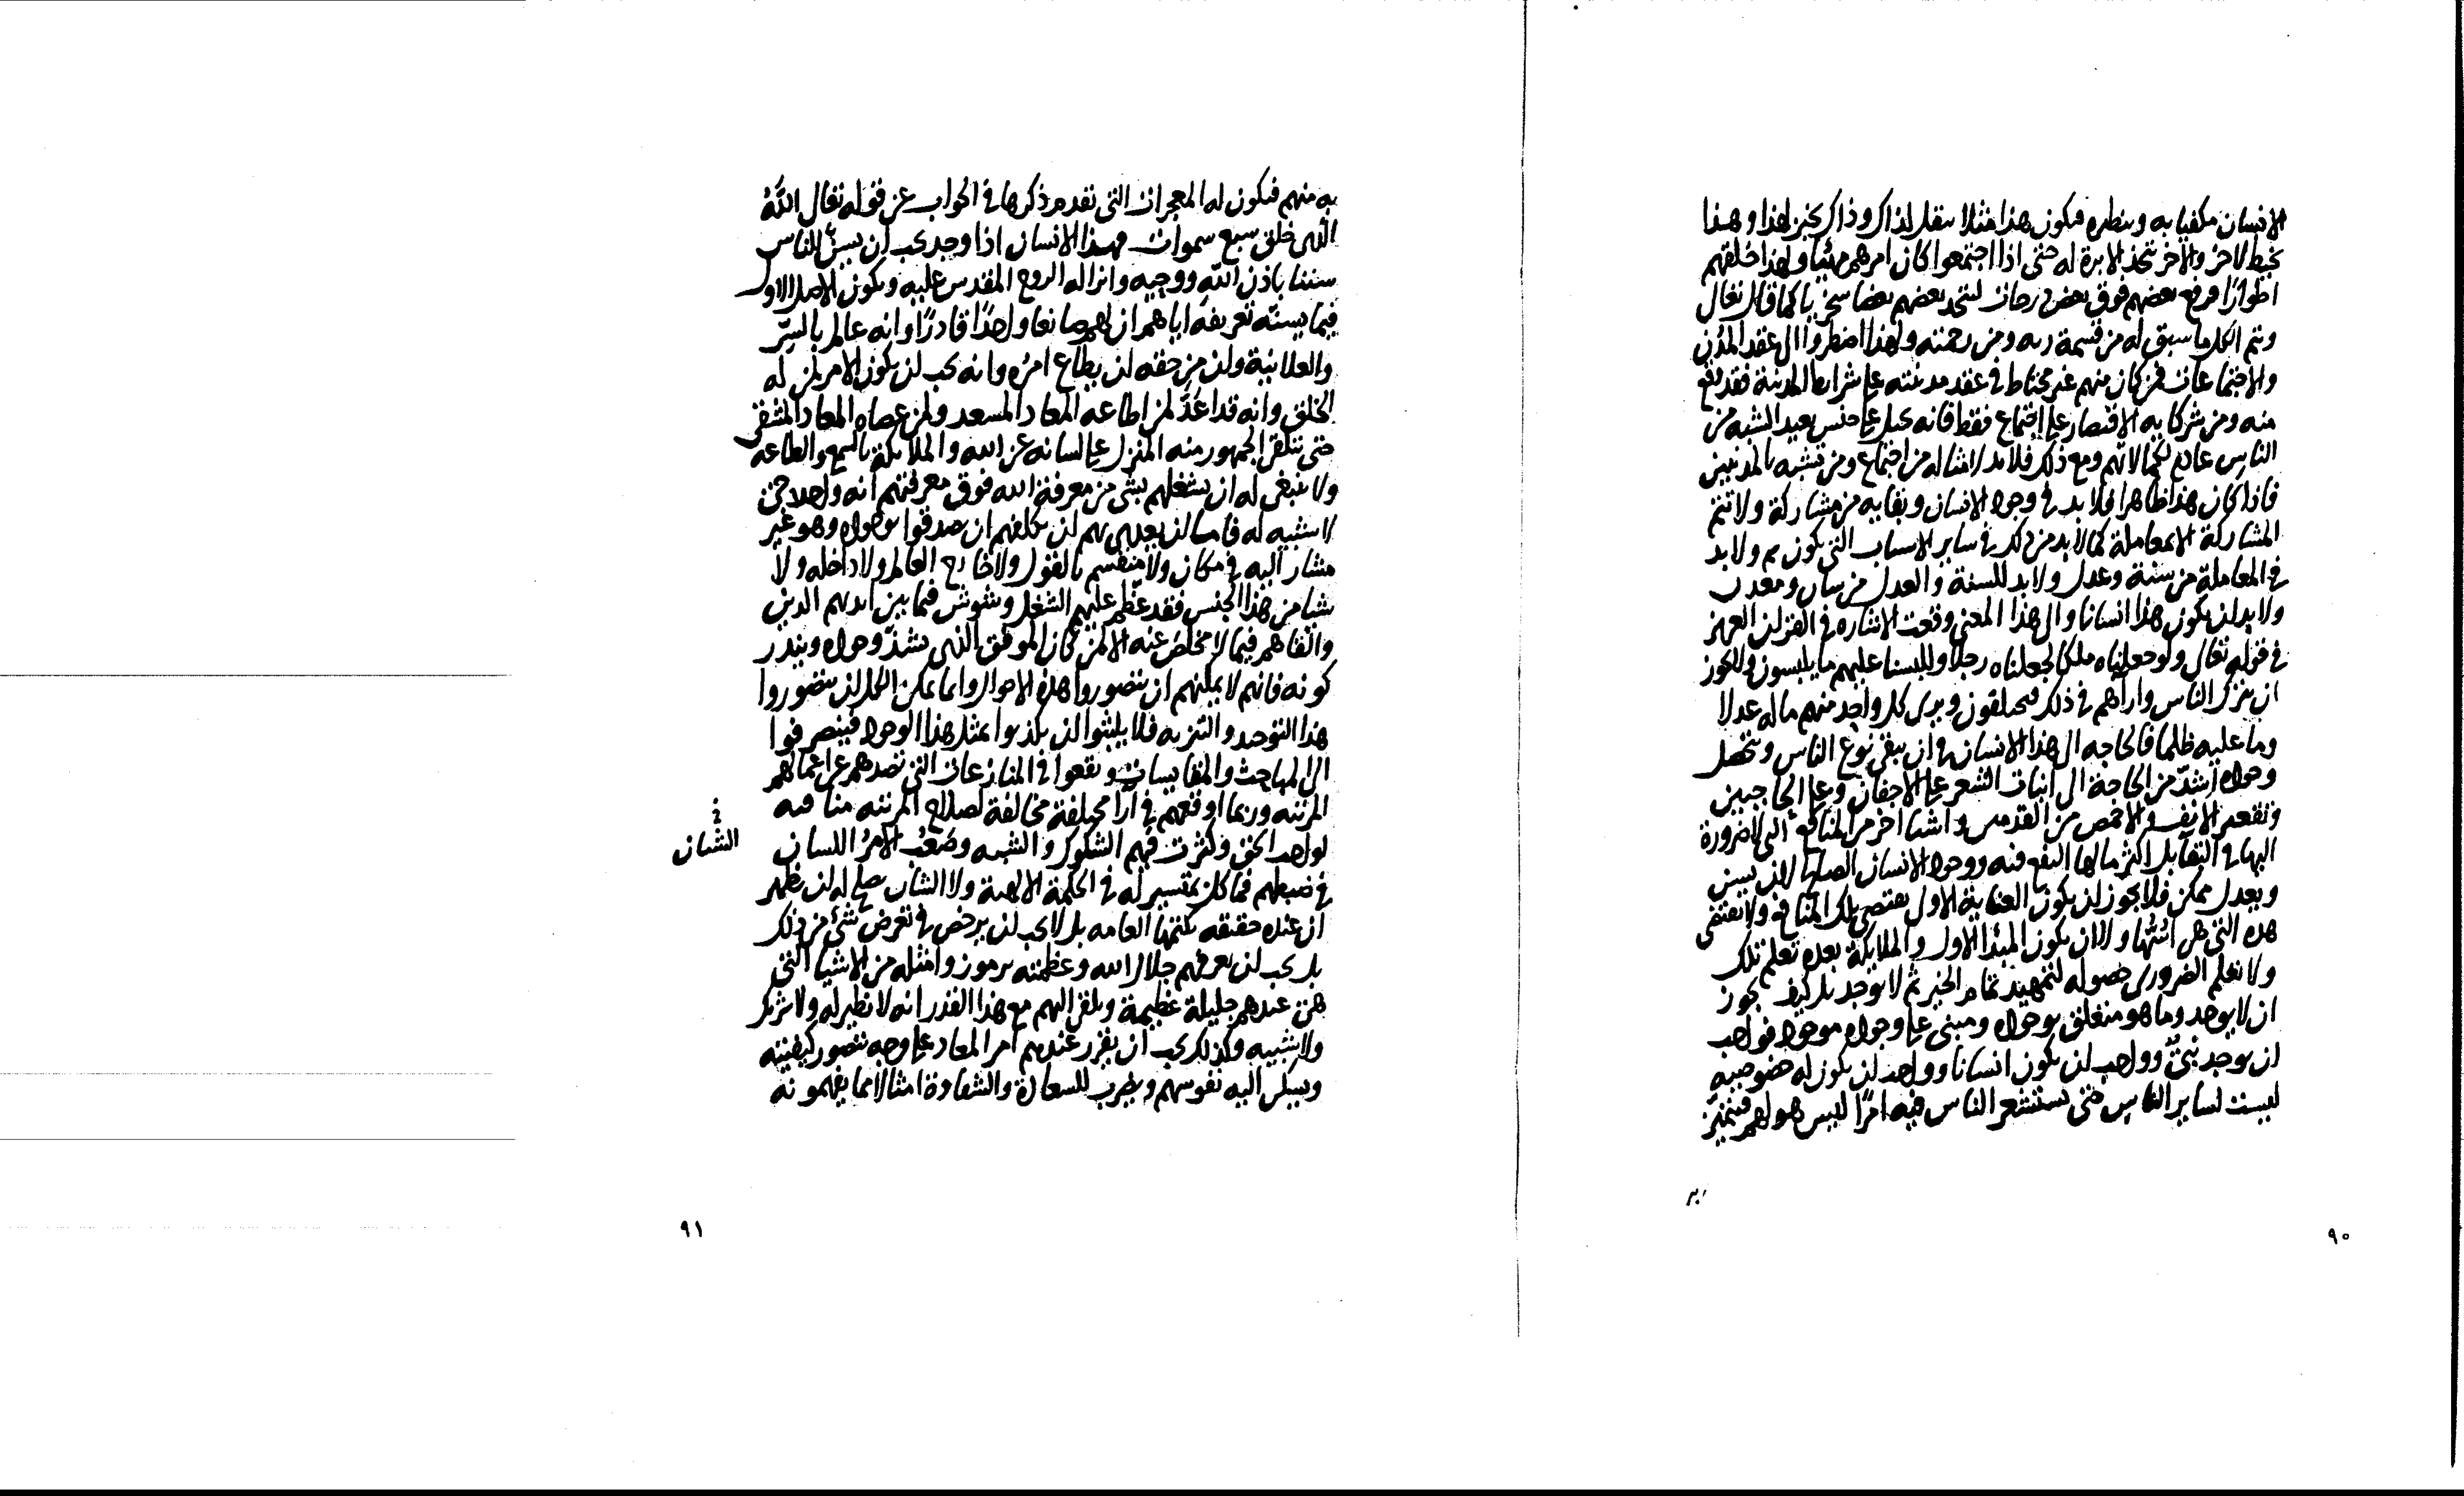 الانسان مكفيا به وبنظيره فيكون هذا مثلا ينقل لذاك وذاك يخبز لهذا وهذا
يخيط لاخر والاخر يتخذ الابرة له حتى اذا اجتمعوا كان امرهم مهيئا ولهذا خلقهم
اطوارًا ورفع بعضهم فوق بعض درجات ليتخذ بعضهم بعضا سخريا كما قال تعالى
ويتم الكل ما سبق له من قسمة ربه ومن رحمته ولهذا اضطروا الى عقد المدن
والاجتماعات فمن كان منهم غير محتاط في عقد مدينته على شرايط المدينة فقد بقع
منه ومن شركايه الاقتصار على اجتماع فقط فانه يحيل على جنس بعيد الشبه من
الناس عادم لكمالاتهم ومع ذلك فلا بد لامثاله من اجتماع ومن تشبه بالمدنيين
فاذا كان هذا ظاهرا فلا بد في وجود الانسان وبقايه من مشاركة ولا تتم
المشاركة الا بمعاملة كما لا بد من ذلك في ساير الاسباب التي يكون بهم ولا بد
في المعاملة من سنة وعدل ولا بد للسنة والعدل من سان ومعدل
ولا بد لن يكون هذا انسانا والى هذا المعنى وقعت الاشاره في القران العزيز
في قوله تعالى ولو جعلناه ملكا لجعلناه رجلا وللبسنا عليهم ما يلبسون ولا يجوز
ان يترك الناس واراهم في ذلك فيختلفون ويرى كل واحد منهم ما له عدلا
وما عليه ظلما فالحاجه الى هذا الانسان في ان يبقى نوع الناس ويتحصل
وجوده اشدّ من الحاجة الى انبات الشعر على الاجفان وعلى الحاجبين
وتقعير الانف والاخمص من القدمين واشيا اخر من المنافع التي لا ضرورة
اليها في التقابل اكثر مالها النفع فيه ووجود الانسان الصالح لان يسن
ويعدل ممكن فلا يجوز لن يكون العناية الاولى يقتضي تلك المنافع ولا يقتضي
هذه التي هي اسّها ولا ان يكون المبدا الاول والملايكة بعده تعلم تلك
ولا تعلم الضروري حصوله لتمهيد نظام الخير ثم لا يوجد بل كيف يجوز
ان لا يوجد وما هو متعلق بوجوده ومبني على وجوده موجود فواجب
ان يوجد نبيّ وواجب لن يكون انسانا وواجب لن يكون له خصوصية
ليست لساير الناس حتى يستشعر الناس فيه امرًا ليس هو لهم فيتميّز
٩٠
به منهم فيكون له المعجزات التي تقدم ذكرها في الجواب عن قوله تعالى اللهُ
الذي خلق سبع سموات فهذا الانسان اذا وجد يجب لن يسنّ للناس
سننا باذن الله ووحيه وانزاله الروح المقدس عليه ويكون الاصل الاول
فيما يسنّه تعريفه اياهم ان لهم صانعا واحدًا قادرًا وانه عالم بالسرّ
والعلانية ولن من حقه لن يطاع امره وانه يجب لن يكون الامر لمن له
الخلق وانه قد اعدّ لمن اطاعه المعاد المسعد ولمن عصاه المعاد المشقي
حتى يتلقى الجمهور منه المنزل على لسانه عن الله والملايكة بالسمع والطاعه
ولا ينبغي له ان يشغلهم بشي من معرفة الله فوق معرفتهم انه واحد حق
لا شبيه له فاما لن يعدي بهم لن يكلفهم ان يصدقوا بوجوده وهو غير
مشار اليه في مكان ولا منقسم بالقول ولا خارج العالم ولا داخله ولا
شيا من هذا الجنس فقد عظّم عليهم الشغل وشوش فيما بين ايديهم الدين
والقاهم فيما لا مخلص عنه الا لمن كان الموفق الذي يشذّ وجوده ويندر
كونه فانهم لا يمكنهم ان يتصوروا هذه الاحوال وانما يمكن الكل لن يتصوروا
هذا التوحيد والتنزيه فلا يلبثوا لن يكذبوا بمثل هذا الوجود فينصرفوا
الى المباحث والمقايسات ويقعوا في المنازعات التي تصدهم عن اعمالهم
المدنيه وربما اوقعهم في ارا مختلفة مخالفة لصلاح المدينه منافيه
لواجب الحق وكثرت فيهم الشكوك والشبه وصعُب الامر اللسان
الشان
في ضبطهم فما كل بمتيسر له في الحكمة الالهية ولا الشان يصلح له لن يظهر
ان عنده حقيقه يكتمها العامه بل لا يجب لن يرخص في تعرض شيء من ذلك
بل يجب لن يعرفهم جلال الله وعظمته برموز وامثله من الاشيا التي
هي عندهم جليلة عظيمة ويلقى اليهم مع هذا القدر انه لا نظير له ولا شريك
ولا شبيه وكذلك يجب ان يقرر عندهم امر المعاد على وجه يتصور كيفيته
ويسكن اليه نفوسهم ويضرب للسعادة والشقاوة امثالا مما يفهمونه
٩١